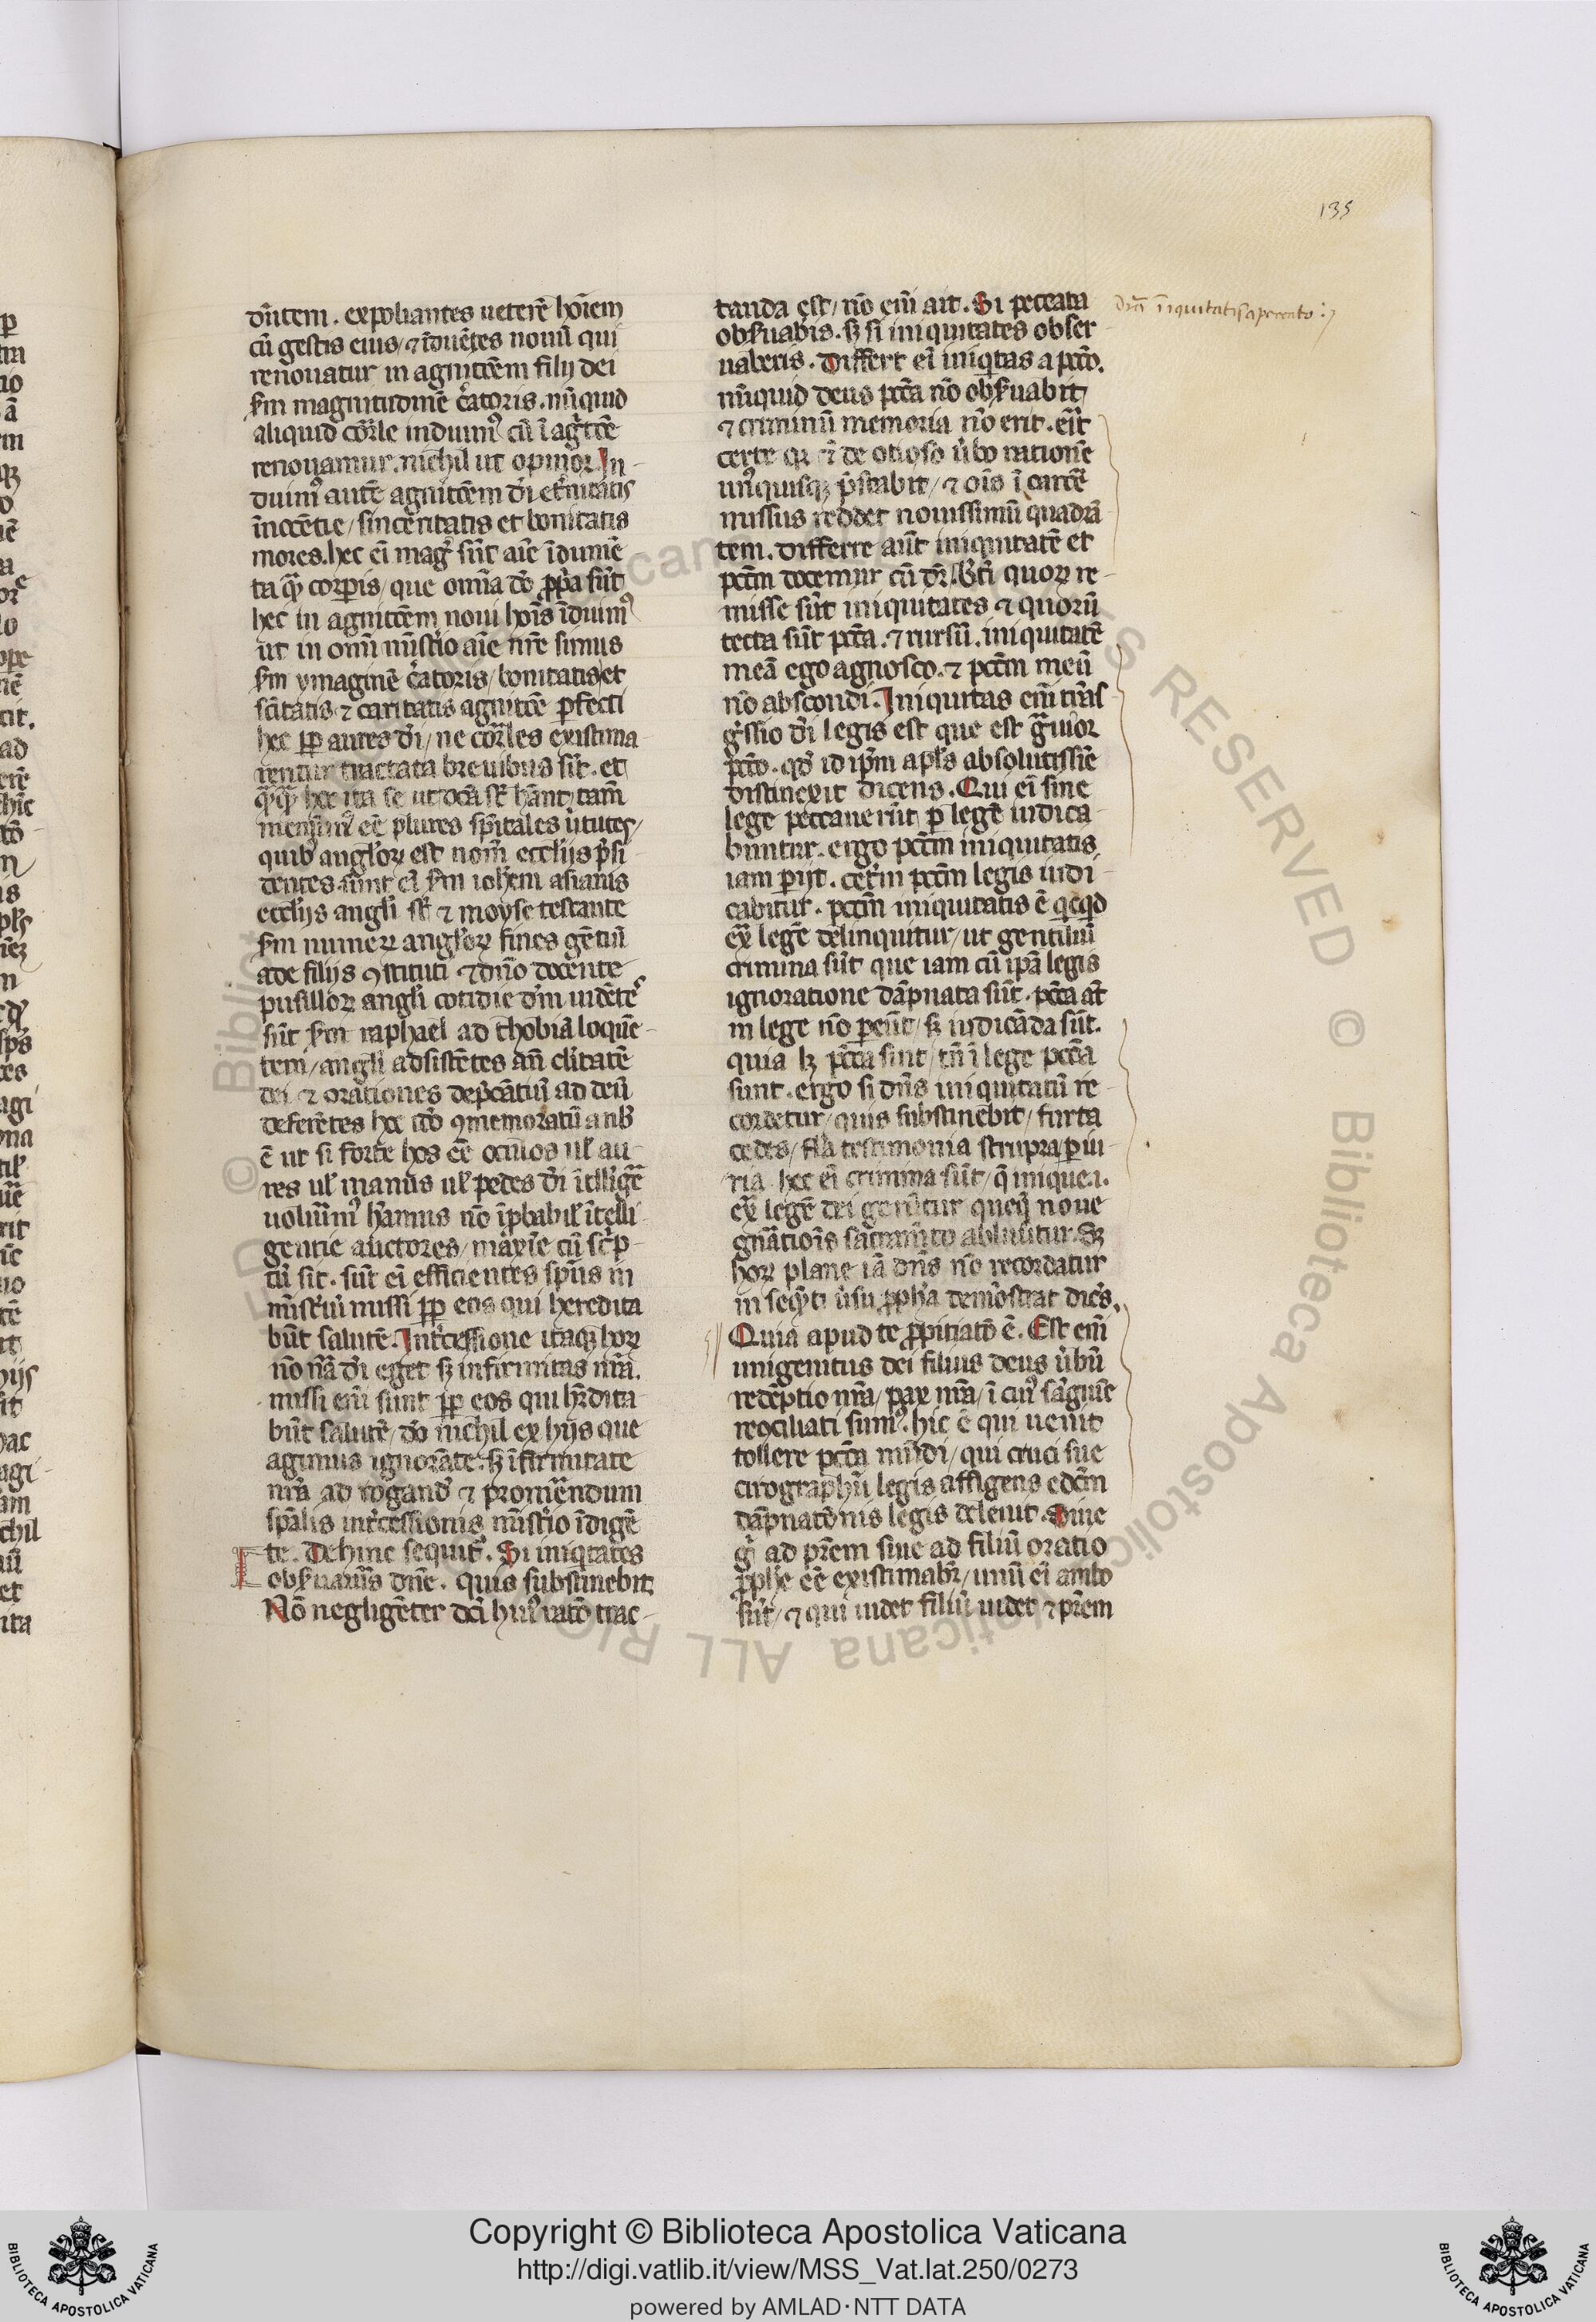 135
dicentem. expoliantes ueterē hoīem
cū gestis eius / ⁊ īduētes nouū qui
renouatur in agnitōem filij dei
scđm magnitudinē c̄atoris. nūquid
aliquid corꝑ̄le induimꝰ cū ī agnitōe
renouamur. nichil ut opinor. In-
duimꝰ autē agnitōem dī et̄nitatis
īnocētie / sinceritatis et bonitatis
mores. hec eī magꝭ sūt aīe īdumē
ta qͣꝫ corꝑis / que omīa dō ꝓpͥa sūt
hec in agnitōem noui hoīs īduimꝰ
ut in omī mīst̄io aīe nr̄e simus
scđm ymaginē c̄atoris / bonitatis et
sc̄itatis ⁊ caritatis agnitōe ꝑfecti
hec ꝓp aures dī / ne corꝑ̄les existima
rentur tractata breuibus sīt. et
qͣꝫqͣꝫ hec ita se ut dc̄a st̄ hn̄t / tam̄
meminīmꝰ eē plures spīrtales ūtutes /
quibꝰ angl̄oꝝ est nom̄ eccl̄ijs p̄si
dentes. sunt eī scđm ioh̄em asianis
eccl̄ijs angl̄i st̄ ⁊ moyse testante
scđm numeꝝ angl̄oꝝ fines gētiū
ade filijs ꝯstituti ⁊ dn̄o docente
pusilloꝝ angl̄i cotidie dm̄ uidētes
sūt scđm raphael ad thobiā loquē-
tem / angl̄i adsistētes an̄ clͣitatē
dei ⁊ orationes dep̄cātiū ad deū
deferētes hec idō ꝯmemoratū a nob̄
ē ut si forte hos eē oculos ul̄ au-
res ul̄ manus ul̄ pedes dī ītelligͤe
uoluīmꝰ habeamus nō īꝓbabil̄ ītelli
gentie auctores / maxīe cū sc̄p-
tū sit. sūt eī efficientes sp̄us in
mīst̄iū missi ꝓp eos qui heredita
būt salutē. Int̄cessione itaqꝫ hoꝝ
nō nā dī eget sꝫ infirmitas nr̄a.
missi enī sunt ꝓp eos qui h̄edita
būt salutē / dō nichil ex hijs que
agimus ignorāte. sꝫ īfirmitate
nr̄a ad rogand̄ ⁊ promerendum
sp̄alis int̄cessionis mīst̄io īdigē
te. Dehinc sequit̄. Si iniqͥtates
obſ̄uaūis dn̄e. quis substinebit
Nō negligēter dc̄i huiꝰ ratō trac-
tanda est / nō enī ait. Si peccata
obſ̄uabis. sꝫ si iniquitates obser
uaberis. Differt eī iniqͥtas a pcc̄o.
nūquid deus pcc̄a nō obſ̄uabit /
⁊ criminū memoria nō erit. erit
certe qꝛ ⁊ de otioso ūbo rationē
unꝰquisqꝫ p̄stabit / ⁊ oīs ī carcē
missus reddet nouissimū quadrā
tem. differre aūt iniquitatē et
pcc̄m docemur cū dr̄. Bt̄i quoꝝ re-
misse sūt iniquitates ⁊ quorū
tecta sūt pcc̄a. ⁊ rursū. iniquitatē
meā ego agnosco. ⁊ pcc̄m meū
nō abscondi. Iniquitas enī tn̄s
gͥssio dī legis est que est gͣuior
pcc̄o. qđ id ip̄m apl̄s absolutissīe
distinexit dicens. Qui eī sine
lege peccauerūt / ꝑ legē iudica
buntur. ergo pcc̄m iniquitatis
iam ꝑijt. cet̄m pcc̄m legis iudi-
cabitur. pcc̄m iniquitatis ē qͥcqͥd
ex̄ legē delinquitur / ut gentiliū
crimina sūt que iam cū ip̄a legis
ignoratione dāpnata sūt. pcc̄a aūt
in lege nō ꝑeūt / sꝫ iudicāda sūt.
quia lꝫ pcc̄a sint / tn̄ ī lege pcc̄a
sunt. ergo si dn̄s iniquitatū re-
cordetur / quis substinebit / furta
cedes / fl̄a testimonia strupra ꝑiu-
ria. hec eī crimina sūt / q̄ inique .i.
ex̄ legē dei gerūtur queqꝫ noue
gn̄ationis sacͣmēto abluūtur. Sꝫ
hoꝝ plane iā dn̄s nō recordatur
in seqͤti ūsu ꝓph̄a demōstrat dicēs.
Quia apud te ꝓpitiatō ē. Est enī
unigenitus dei filius deus ūbū
redēptio nr̄a / pax nr̄a / ī cuiꝰ sāguīe
recōciliati sumꝰ. hic ē qui uenit
tollere pcc̄a mūdi / qui cruci sue
cirographū legis affigens edc̄m
dāpnatōnis legis deleuit. Siue
gͦ ad pr̄em siue ad filiū oratio
ꝓph̄e eē existimabr̄ / unū eī ambo
sūt / ⁊ qui uidet filiū uidet ⁊ pr̄em
Dr̄a īiquitatis a peccato :⁊
Copyright © Biblioteca Apostolica Vaticana
http://digi.vatlib.it/view/MSS_Vat.lat.250/0273
powered by AMLAD·NTT DATA
BIBLIOTECA APOSTOLICA VATICANA
BIBLIOTECA APOSTOLICA VATICANA